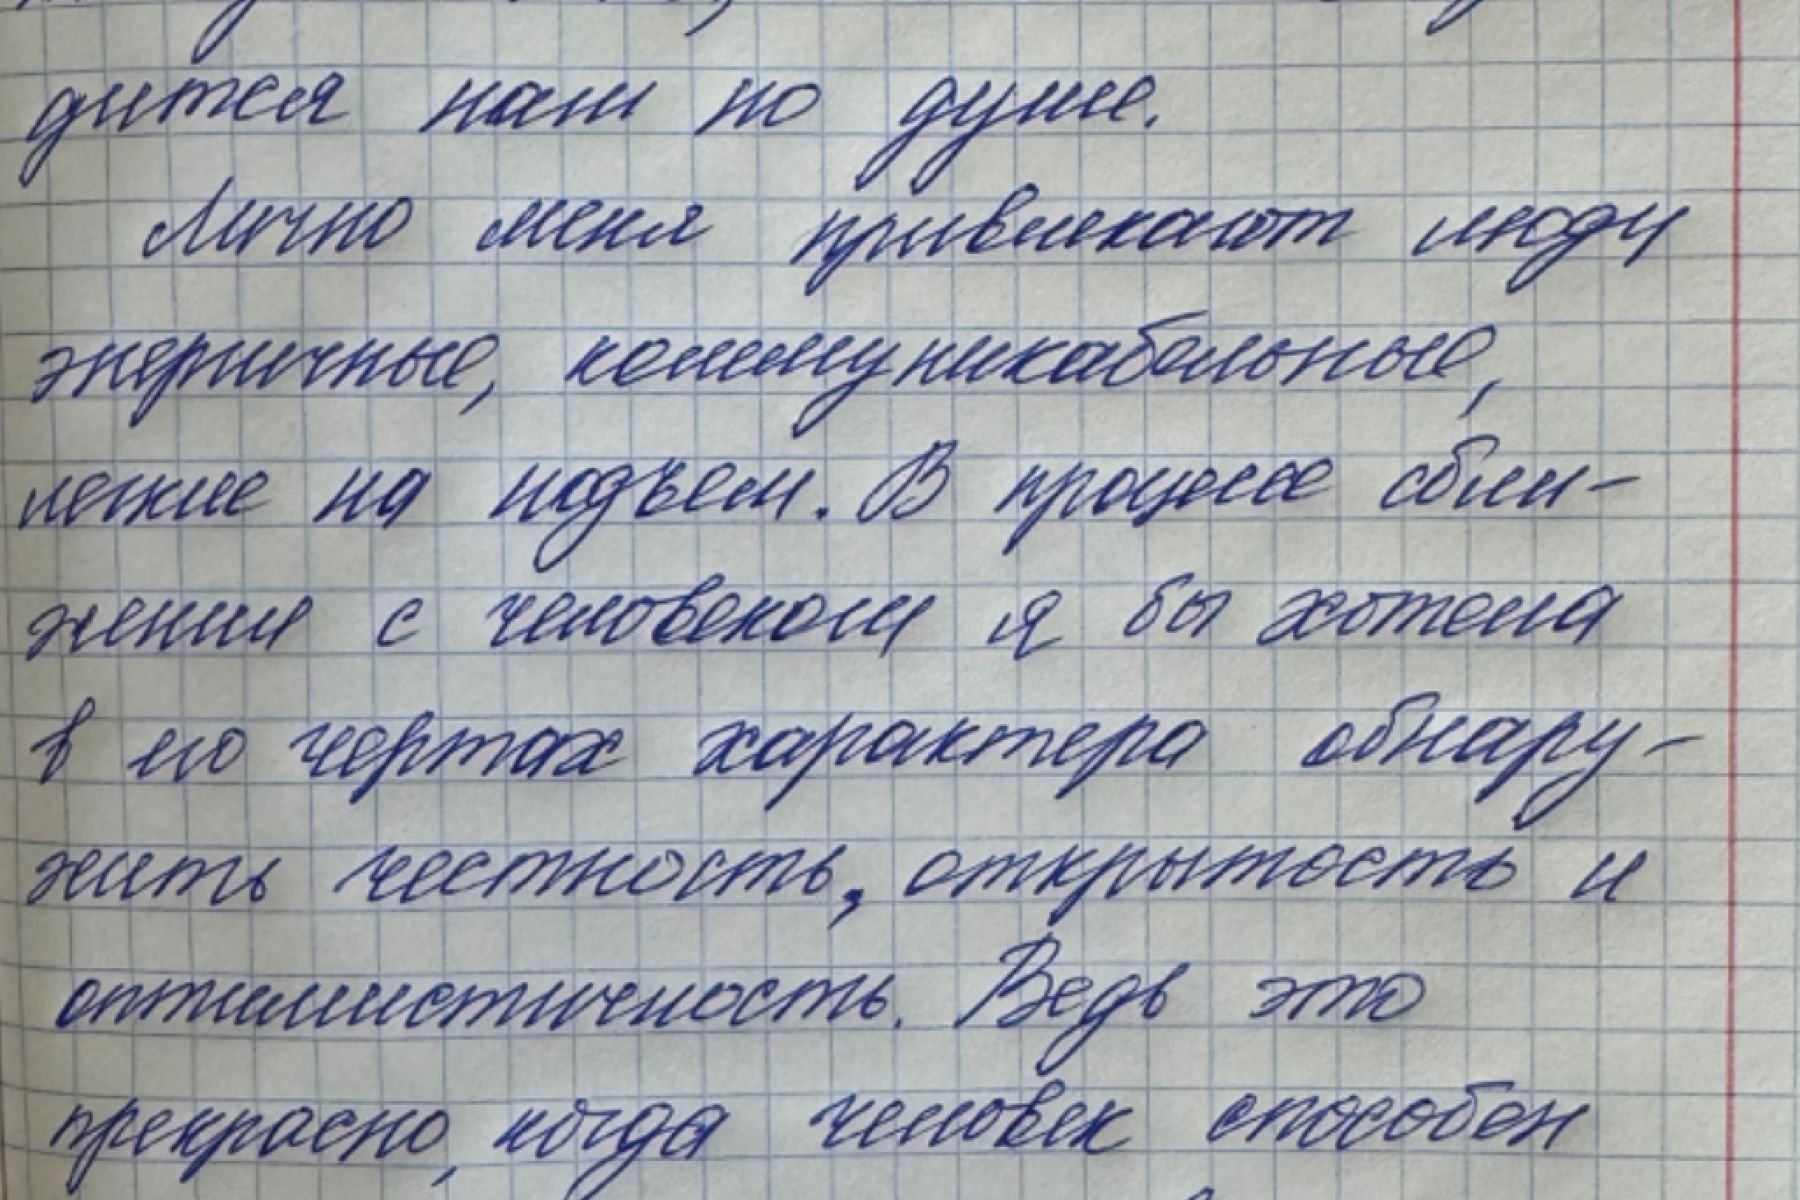 дится нам по душе.
Лично меня привлекают люди
энергичные, коммуникабельные,
легкие на подъем. В процессе сбли-
жения с человеком я бы хотела
в его чертах характера обнару-
жить честность, открытость и
оптимистичность. Ведь это
прекрасно, когда человек способен